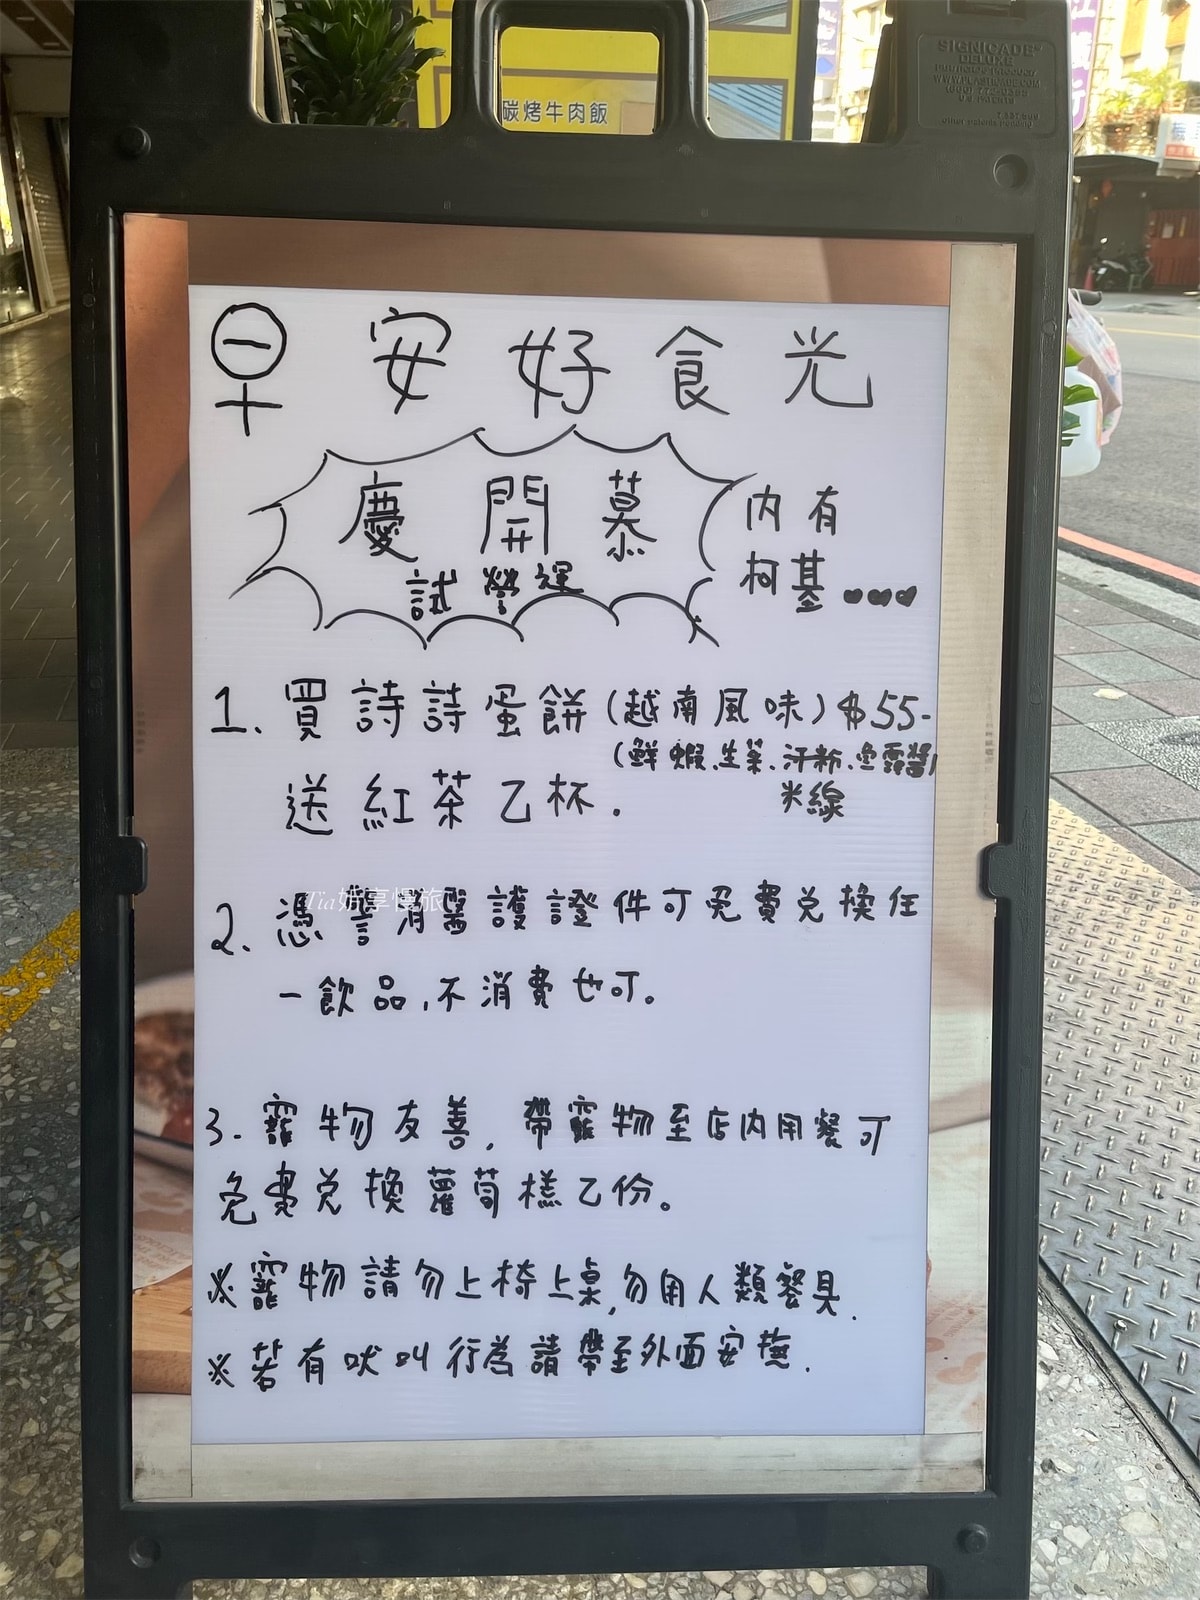 SIGNICADE
DELUXE
碳烤牛肉飯
早安好食光
慶開幕
試營運
內有
柯基
1. 買詩詩蛋餅(越南風味)$55-
(鮮蝦、生菜、汙粉、魚露醬)
米線
送紅茶乙杯.
Tia妍享慢旅
2. 憑警消醫護證件可免費兌換任
一飲品,不消費也可。
3. 寵物友善, 帶寵物至店內用餐可
免費兌換蘿蔔糕乙份。
※寵物請勿上椅上桌,勿用人類餐具.
※若有吠叫行為請帶至外面安撫.